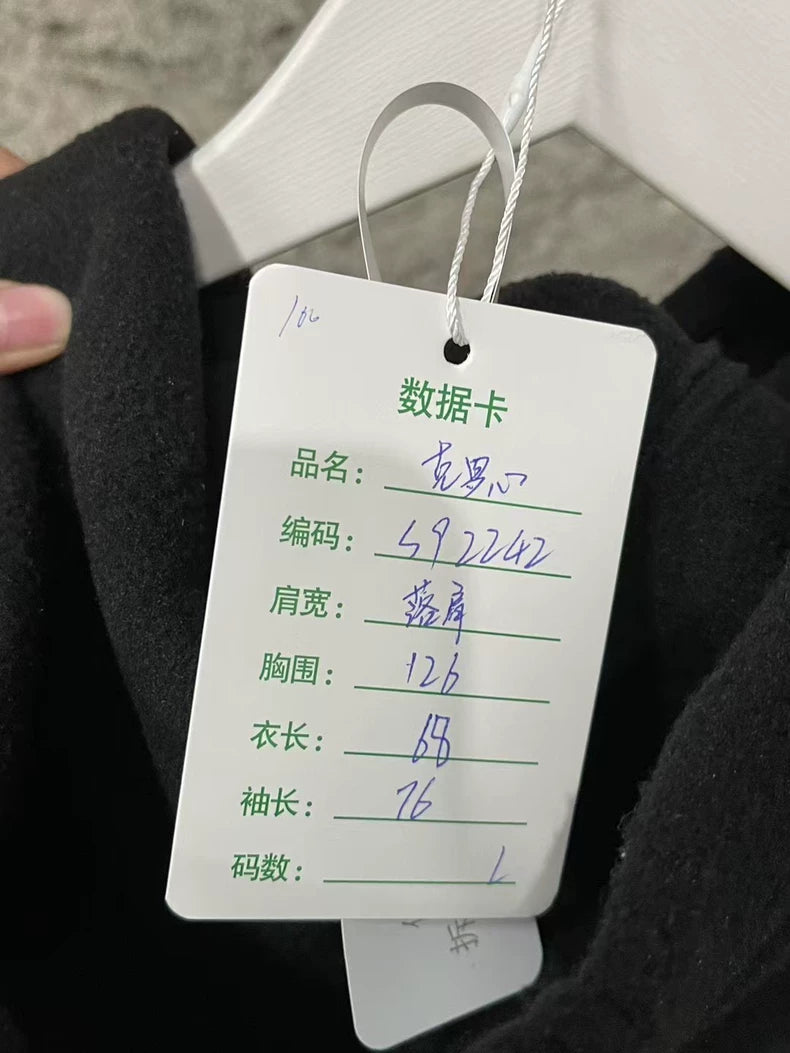 数据卡
品名：克罗心
编码：592242
肩宽：落肩
胸围：126
衣长：68
袖长：76
码数：L
折